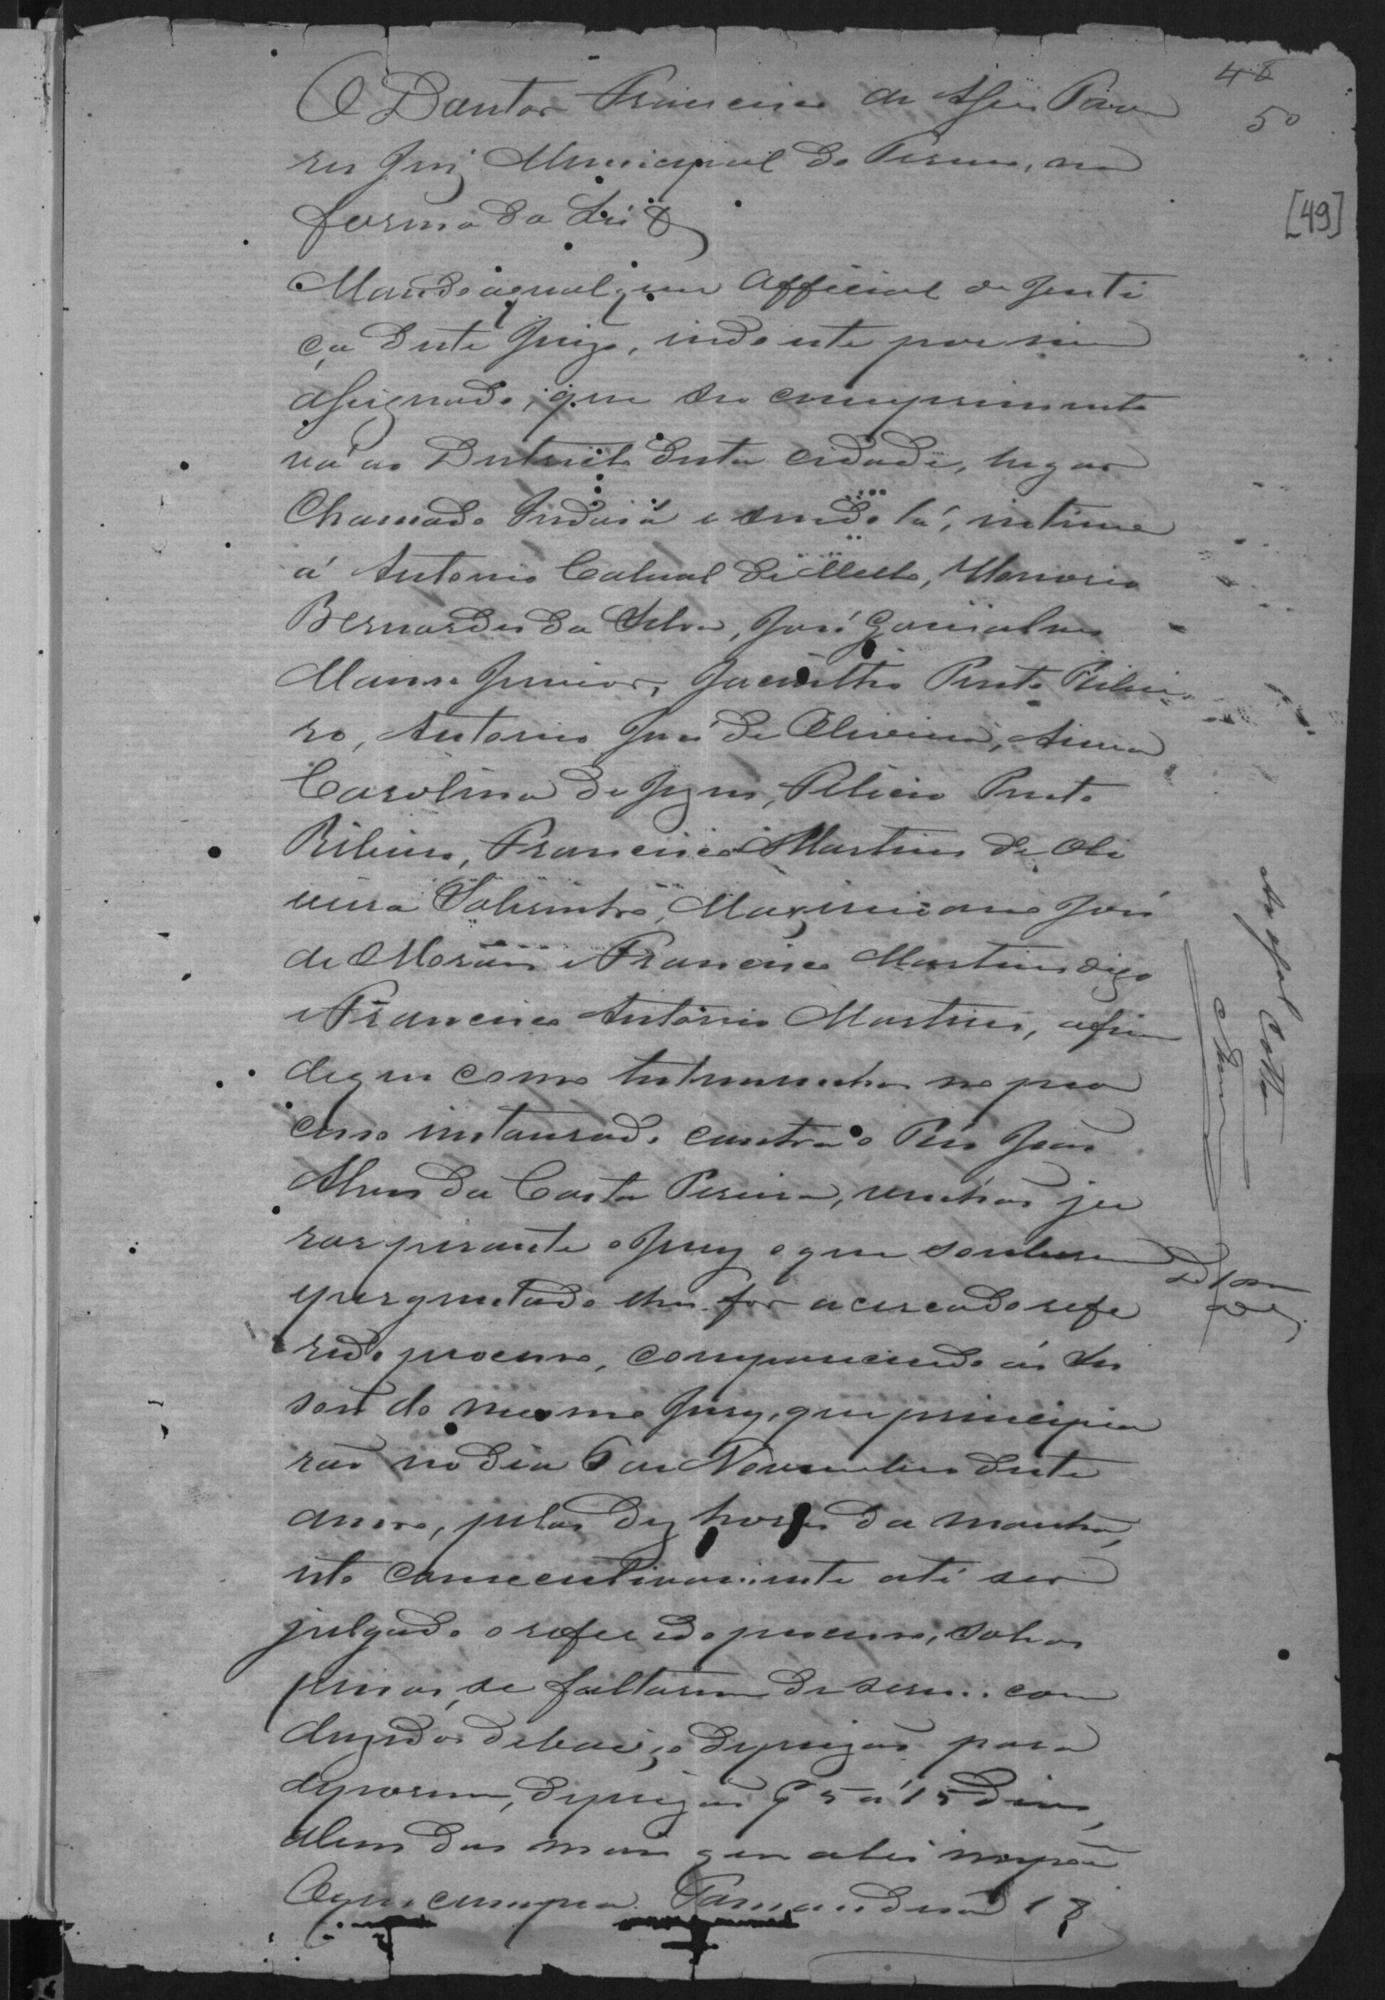 48
50
[49]
O Doutor Francisco de Assis Tava
res Juiz Municipal do Termo, na
forma da Lei &
Mando a qualquer Official de Justi
ça deste Juizo, indo este por mim
assignado, que em seo comprimento
vá ao Districto desta cidade, lugar
chamado Indaiá e sendo lá, intime
á Antonio Cabral de Mello, Honorio
Bernardes da Silva, José Gonsalves
Junior, Jacintho Pinto Ribei
ro, Antonio José de Oliveira, Anna
Carolina de Jezus, Felicio Pinto
Ribeiro, Francisco Martins de Oli
veira Sobrinho, Maximiano José
de Morais e Francisco Martins digo
e Francisco Antonio Martins, afim
de que como testemunhas no pro
cesso instaurado contra o Réo João
Alves da Costa Pereira, venhão ju
rar perante o Jury o que souberem
e perguntado lhes for acerca do refe
rido processo, comparecendo ás ses
sões do mesmo Jury, que principia
rão no dia 6 de Novembro deste
anno, pelas dez horas da manhã,
isto consecutivamente até ser
julgado o referido processo, sob as
penas, se faltarem de serem con
duzidos debaixo de prizão para
deporem, de prizão de 5 a 15 dias,
alem das mais que a lei impõe
O que cumpra. Tamanduá 18
Cotta